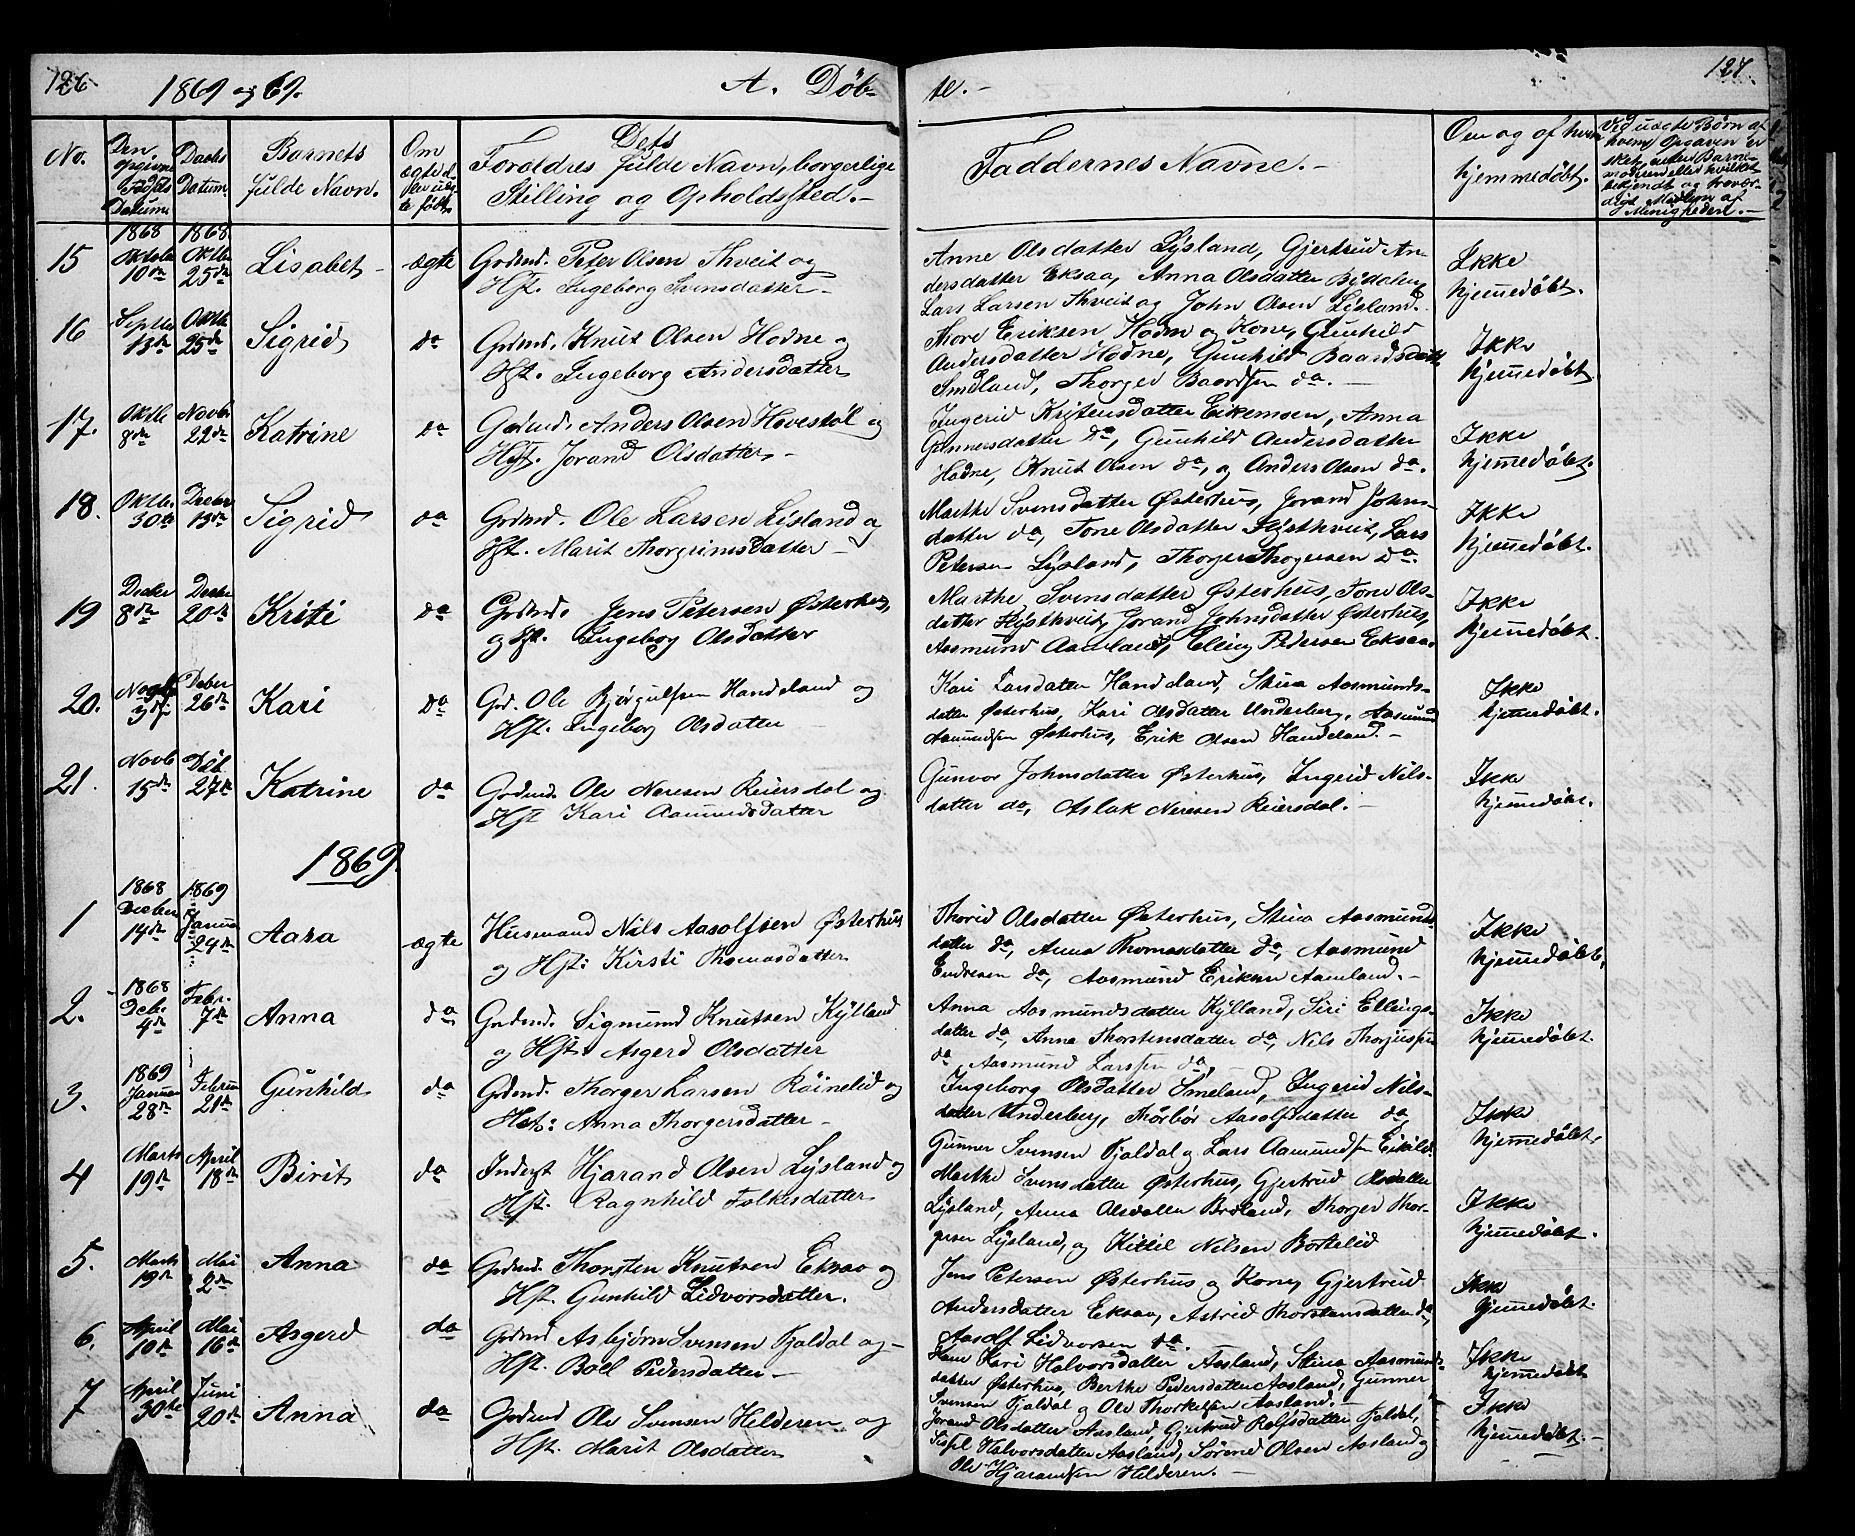 126.
1869 og 69.
A. Døb-
te.-
127
No.
Den opgivne Fødsels Datum
Daabs Datum
Barnets fulde Navn.
Om ægte el. uægte født
Dets Forældres fulde Navn, borgerlige Stilling og Opholdssted.-
Faddernes Navne.-
Om og af hvem hjemmedøbt.
Ved uægte Børn af hvem Opgaven er sket, enten Barnemoderen eller hvilket bekjendt og troværdigt Medlem af Menigheden.-
15 1868 Oktober 10de 1868 Oktbr 25de Lisabet - ægte Grdmd. Peter Olsen Thveit og
Hst. Ingeborg Svensdatter -
Anne Olsdatter Lysland, Gjertrud An-
dersdatter Eksaa, Anna Olsdatter
Lars Larsen Thveit og John Olsen Lysland.
Ikke
hjemmedøbt.
16 Septbr 13de Oktbr 25de Sigrid do Grdmd. Knut Olsen Hodne og
Hst. Ingeborg Andersdatter
Thore Eriksen Hodne og Kone, Gunhild
Andersdatter Hodne, Gunhild Baardsdatt
Smeland, Thorger Baardsen do. -
Ikke
hjemmedøbt.
17. Oktbr 8de Novbr 22de Katrine do Grdmd. Anders Olsen Hovestøl og
Hst. Jorand Olsdatter -
Ingerid Kristensdatter Eikemoen, Anna
Gunnersdatter do, Gunhild Andersdatter
Hodne, Knut Olsen do, og Anders Olsen do.
Ikke
hjemmedøbt.
18. Oktbr. 30te Decbr 13de Sigrid do Grdmd. Ole Larsen Lysland og
Hst. Marit Thorgrimsdatter -
Marthe Svensdatter Østerhus, Jorand Johns-
datter do, Tone Olsdatter Hysthveit, Lars
Petersen Lysland, Thorger Thorgersen do.
Ikke
hjemmedøbt.
19 Decbr 8de Decbr 20de Kristi do Grdmd. Jens Petersen Østerhus,
og Hst. Ingeborg Olsdatter
Marthe Svensdatter Østerhus, Tone Ols-
datter Hysthveit, Jorand Johnsdatter Østerhus,
Aasmund Aamland, Elling Pedersen Eksaa.
Ikke
hjemmedøbt.
20. Novbr 3die Decber 26de Kari do Grd. Ole Bjørgulfsen Handeland og
Hst. Ingeborg Olsdatter -
Kari Larsdatter Handeland, Stina Aasmunds-
datter Østerhus, Kari Olsdatter Underberg, Aasmund
Aamundsen Østerhus, Erik Olsen Handeland. -
Ikke
hjemmedøbt.
21. Novb 15de Deb. 27de Katrine do Grdmd. Ole Neresen Reiersdal og
Hst Kari Aamundsdatter
Gunvor Johnsdatter Østerhus, Ingerid Nils-
datter do, Aslak Neresen Reiersdal. -
Ikke
hjemmedøbt.
1869.
1 1868 Decber 14de 1869 Januar 24de Aasa ægte Husmand Nils Aasolfsen Østerhus
og Hst: Kirsti Thomasdatter
Thorid Olsdatter Østerhus, Stina Aasmunds-
datter do, Anna Thomasdatter do, Aasmund
Endresen do, Aasmund Eriksen Aamland. -
Ikke
hjemmedøbt.
2. 1868 Deb. 4de Febr. 7de Anna do Grdmd. Sigmund Knutsen Kylland
og Hst: Asgerd Olsdatter
Anna Aasmundsdatter Kylland, Siri Ellings-
datter do, Anna Thorstensdatter do, Nils Thorjussen
do Aasmund Larssen do,
Ikke
hjemmedøbt.
3. 1869 Januar 28de Februar 21de Gunhild do Grdmd. Thorger Larsen Røinelid og
Hst: Anna Thorgersdatter -
Ingeborg Olsdatter Smeland, Ingerid Nils-
datter Underberg, Thorbor Aasolfsdatter do
Gunner Svensen Fjaldal og Lars Aamundsen Eikild.
Ikke
hjemmedøbt.
4 Marts 19de April 18de Birit do Inderst Hjarand Olsen Lysland og
Hst. Ragnhild Folkesdatter
Marthe Svensdatter Østerhus, Gjertrud Olsdatter
Lysland, Anna Olsdatter Breland, Thorger Thor-
gersen Lysland, og Kittil Nilsen Bortelid
Ikke
hjemmedøbt.
5. Marts 19de Mai 2de Anna do Grdmd. Thorsten Knutsen Eksaa og
Hst. Gunhild Lidvorsdatter.
Jens Petersen Østerhus og Kone, Gjertrud
Andersdatter Eksaa, Astrid Thorstensdatter do,
Aasolf Lidvorsen do.
Ikke
hjemmedøbt.
6. April 10de Mai 16de Asgerd do Grdmd Asbjørn Svensen Fjaldal og -
Hst. Boel Pedersdatter -
Kari Halvorsdatter Aasland, Stina Aasmunds-
datter Østerhus, Berthe Pedersdatter Aasland, Gunner
Svensen Fjaldal og Ole Thorkelsen Aasland. -
Ikke
hjemmedøbt
7 April 30te Juni 20de Anna do Grdmd Ole Svensen Helderen og
Hst. Marit Olsdatter
Jorand Olsdatter Aasland, Gjertrud Rolfsdatter Fjaldal,
Sissel Halvorsdatter Aasland, Sørene Olsen Aasland og
Ole Hjarandsen Helderen. -
Ikke
hjemmedøbt. -